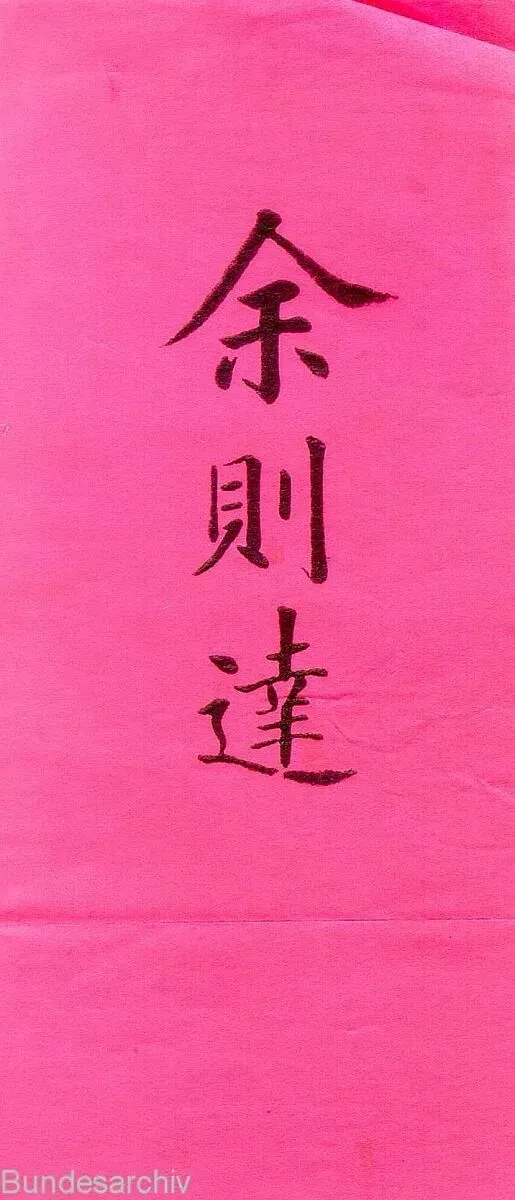 余則達
Bundesarchiv